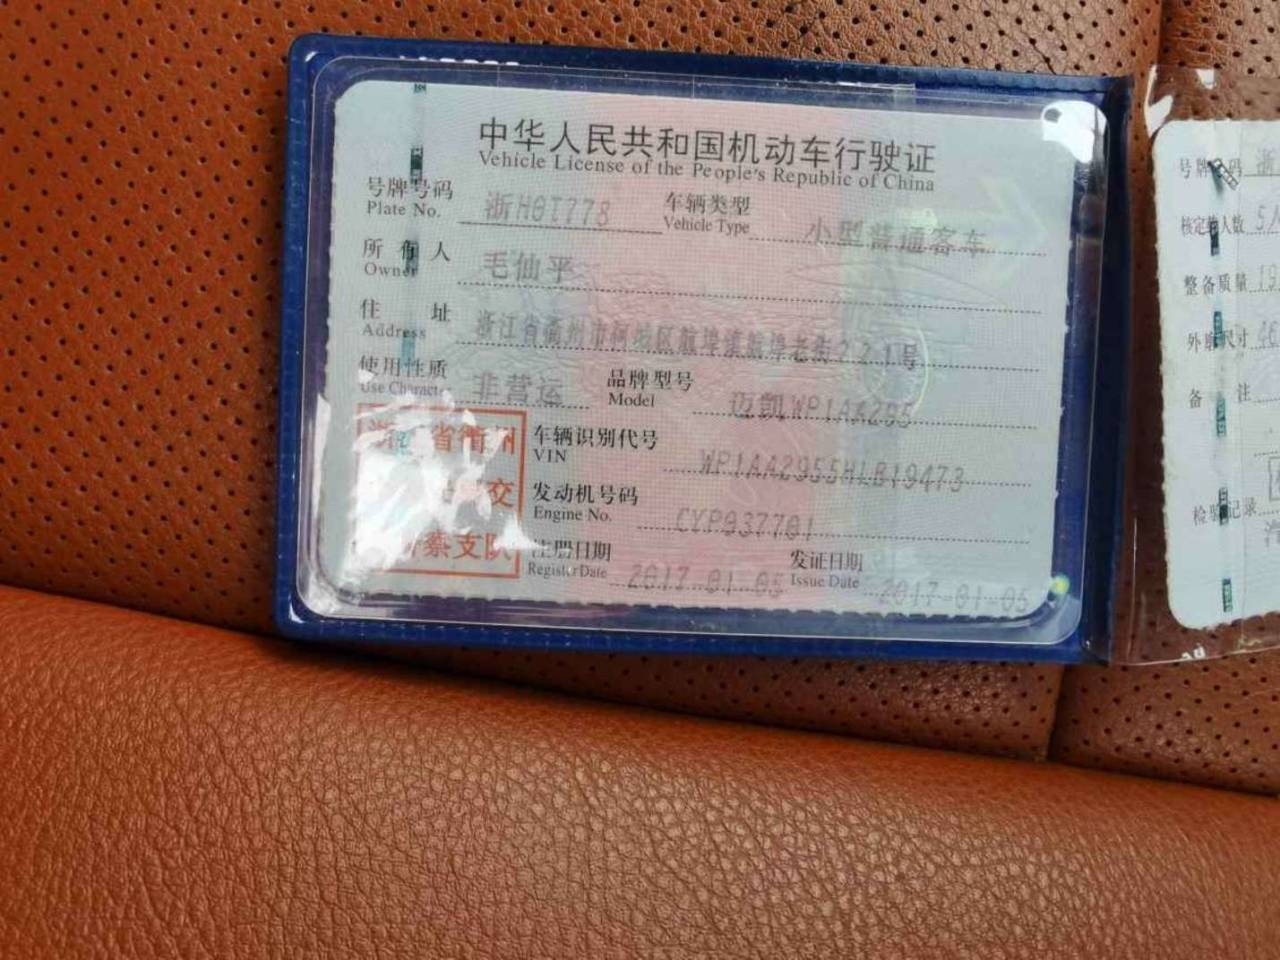 中华人民共和国机动车行驶证
Vehicle License of the People's Republic of China
号牌号码 浙H0T778 车辆类型 小型普通客车
Plate No. Vehicle Type
所有人 毛仙平
Owner
住址 浙江省衢州市柯城区航埠镇航埠老街221号
Address
使用性质 非营运 品牌型号 迈凯WP1AA295
Use Character Model
车辆识别代号 WP1AA2955HLB19473
VIN
发动机号码 CYP037701
Engine No.
注册日期 2017-01-05 发证日期 2017-01-05
Register Date Issue Date
省衢州
交
察支队
号牌 码 浙
核定载人数 5
整备质量 19
外廓尺寸 46
备注
检验记录